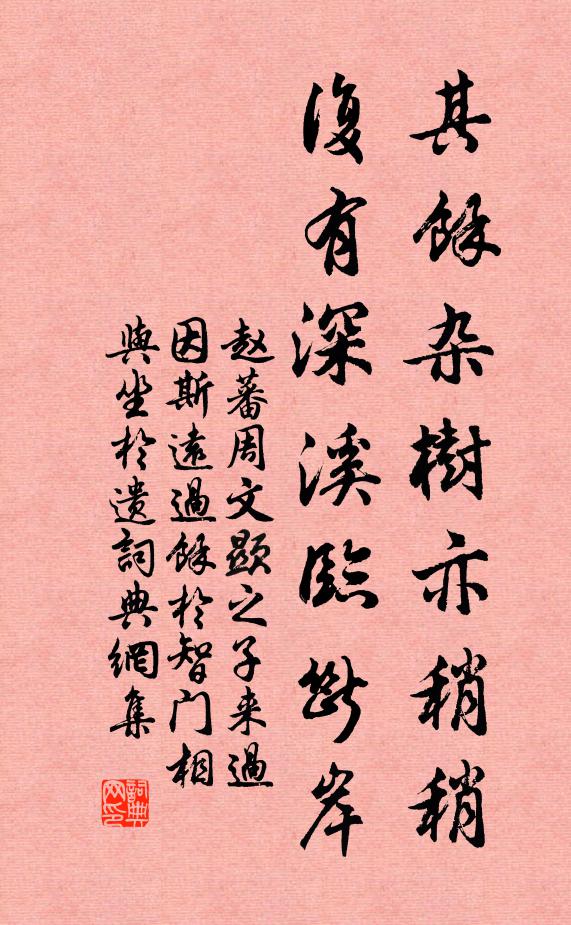 其餘杂樹亦稍稍
復有深溪臨断岸
赵蕃周文顕之子来過
因斯遠過餘於智门相
與坐於遺詞典網集
詞典网印